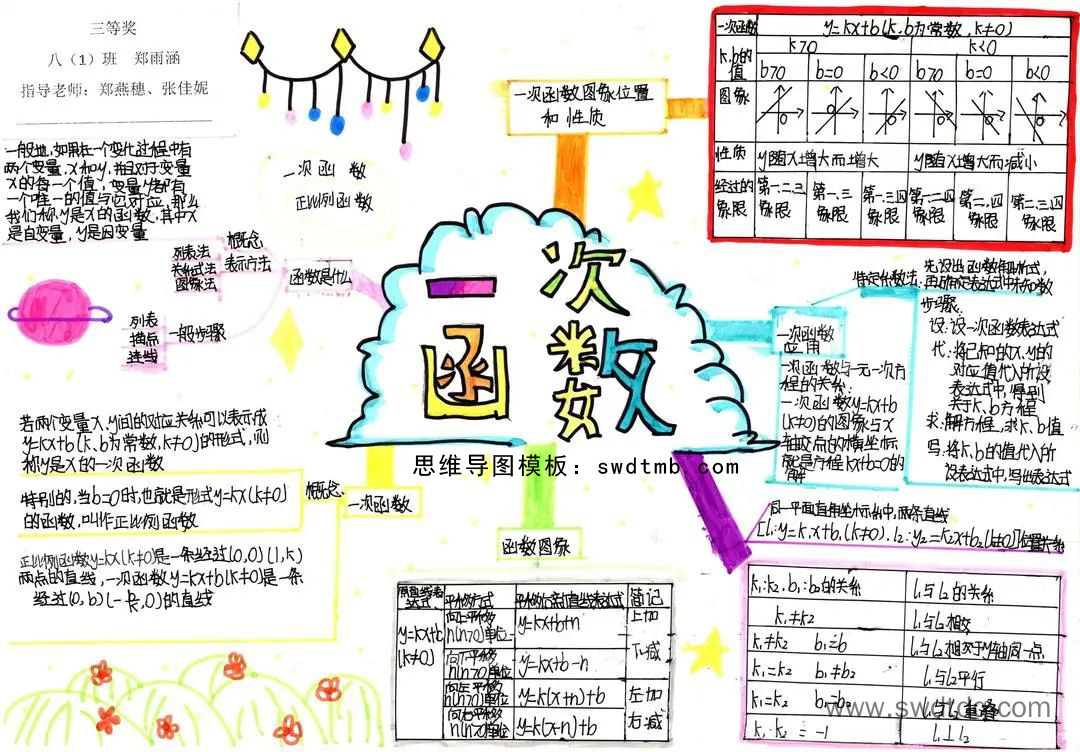 三等奖
八（1）班 郑雨涵
指导老师：郑燕穗、张佳妮
一般地,如果在一个变化过程中有
两个变量,x和y,并且对于变量
x的每一个值,变量y都有
一个唯一的值与它对应,那么
我们称y是x的函数,其中x
是自变量,y是因变量
一次函数
正比例函数
概念
列表法
关系式法
图像法
表示方法
函数是什么
列表
描点
连线
一般步骤
一次函数图象位置
和性质
一次函数 y=kx+b(k,b为常数,k≠0)
k,b的值 k>0 k<0
b>0 b=0 b<0 b>0 b=0 b<0
图象
性质 y随x增大而增大 y随x增大而减小
经过的象限 第一、二、三象限 第一、三象限 第一、三、四象限 第一、二、四象限 第二、四象限 第二、三、四象限
一次
函数
思维导图模板：swdtmb.com
一次函数
应用
一次函数与一元一次方
程的关系:
一次函数y=kx+b
(k≠0)的图像与x
轴交点的横坐标
就是方程kx+b=0的
解
待定系数法
先设出函数解析式,
再确定表达式中未知数
步骤
设:设一次函数表达式
代:将已知的x,y的
对应值代入所设
表达式中,得到
关于k,b方程
求:解方程,求k、b值
写:将k、b的值代入所
设表达式中,写出表达式
若两个变量x,y间的对应关系可以表示成
y=kx+b(k、b为常数,k≠0)的形式,则
称y是x的一次函数
特别的,当b=0时,也就是形式y=kx(k≠0)
的函数,叫作正比例函数
正比例函数y=kx(k≠0)是一条经过(0,0)(1,k)
两点的直线,一次函数y=kx+b(k≠0)是一条
经过(0,b)(-b/k,0)的直线
概念
一次函数
函数图象
原直线表达式 平移方式 平移后新直线表达式 简记
y=kx+b
(k≠0)
向上平移n(n>0)单位 y=kx+b+n 上加
向下平移n(n>0)单位 y=kx+b-n 下减
向左平移n(n>0)单位 y=k(x+n)+b 左加
向右平移n(n>0)单位 y=k(x-n)+b 右减
同一平面直角坐标系中,两条直线
[l₁:y=k₁x+b₁(k≠0),l₂:y₂=k₂x+b₂(k≠0)]位置关系
k₁·k₂,b₁·b₂的关系 l₁与l₂的关系
k₁≠k₂ l₁与l₂相交
k₁≠k₂ b₁=b l₁与l₂相交于y轴同一点
k₁=k₂ b₁≠b₂ l₁与l₂平行
k₁=k₂ b₁=b₂ l₁与l₂重叠
k₁·k₂=-1 l₁⊥l₂
www.swdtdq.com